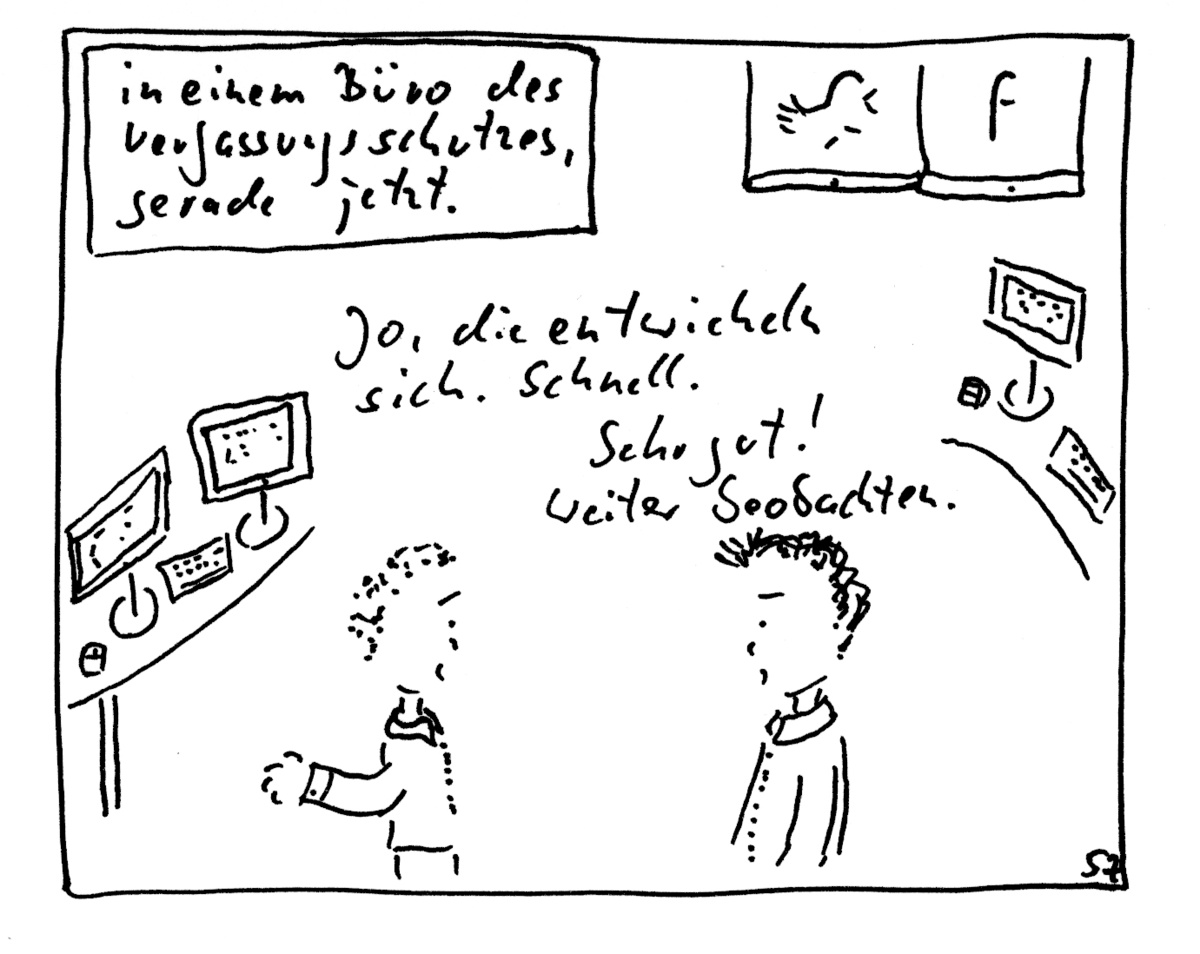 in einem Büro des
verfassungsschutzes,
gerade jetzt.
F
Jo, die entwickeln
sich. Schnell.
Sehr gut!
weiter beobachten.